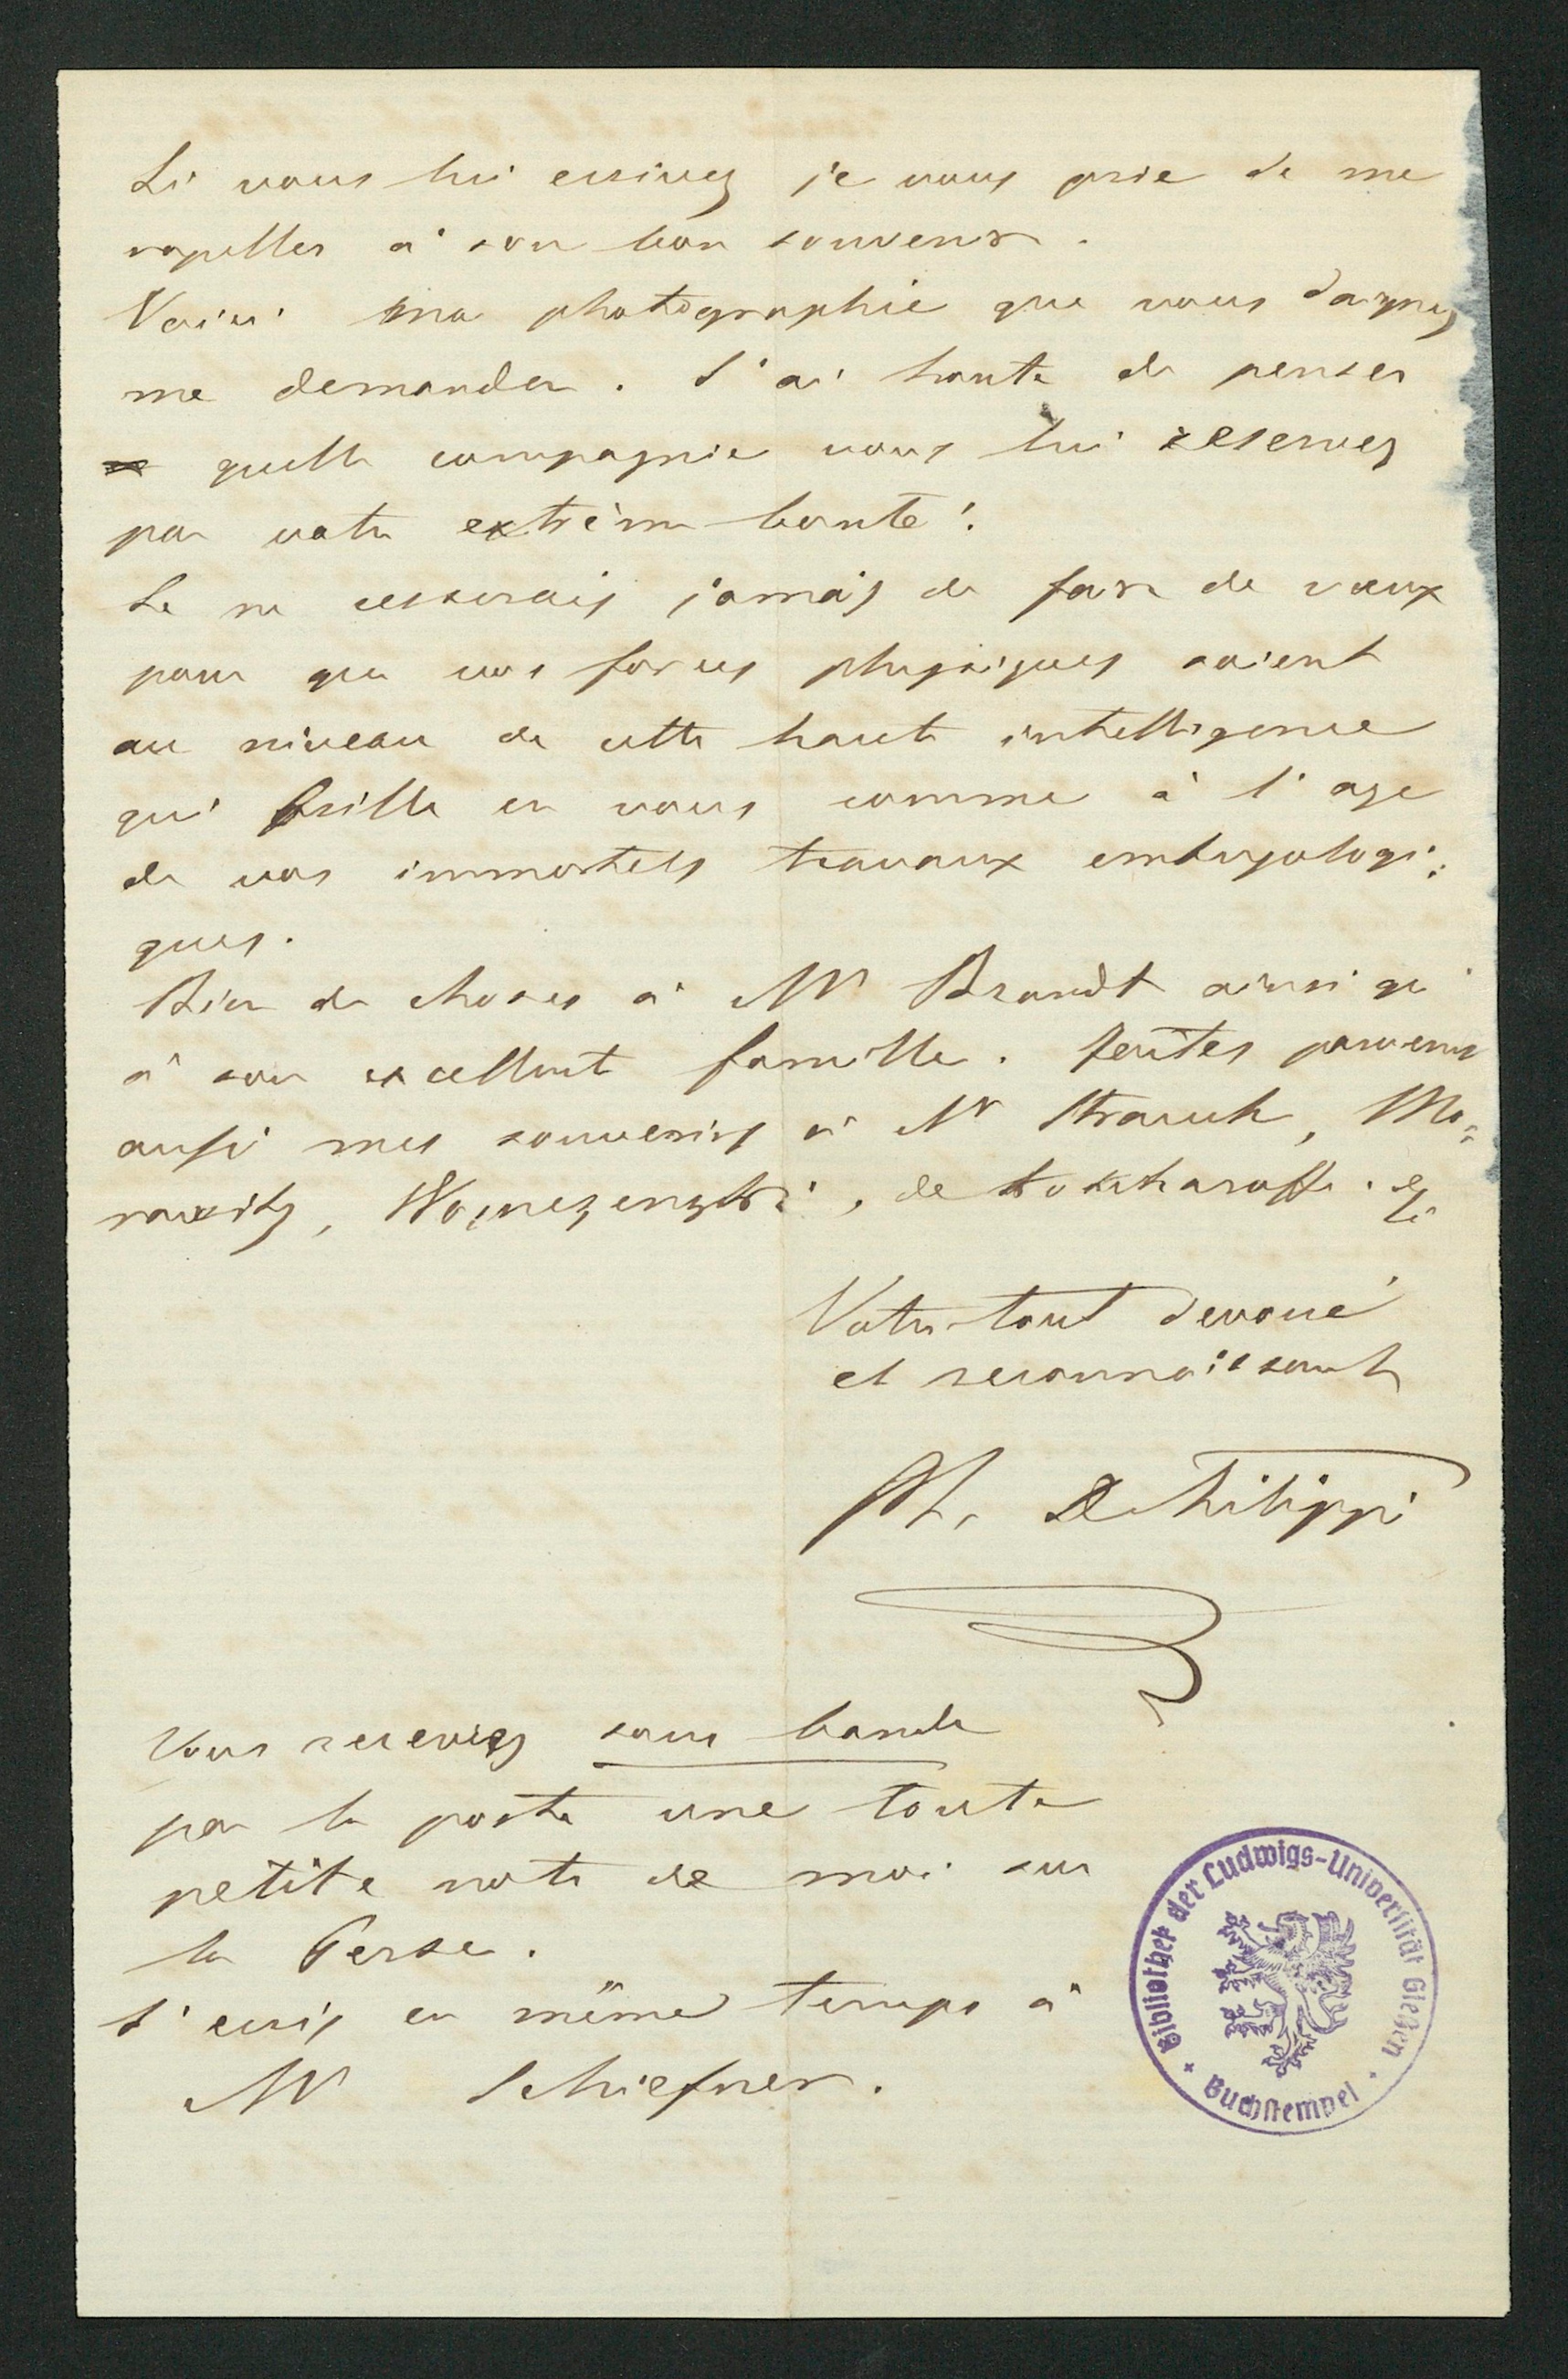 Si vous lui ecrivez je vous prie de me
rapeller à son bon souvenir.
Voici ma photographie que vous daignez
me demander. J'ai honte de penser
quelle compagnie vous lui reservez
par votre extrème bonté!
Je ne cesserais jamais de faire de vœux
pour que vos forces physiques soient
au niveau de cette haute intelligence
qui brille en vous comme à l'age
de vos immortels travaux embryologi=
ques.
Bien de choses à Mr Brandt ainsi qu'
à son excellent famille. Feites parvenir
aussi mes souvenirs à Mr Strauch, Mo=
rawitz, , de Kokscharoff. etc
Votre tout devoué
et reconnaissant
Ph. De Filippi
Vous recevrez sous bande
par la poste une toute
petite note de moi sur
la Perse.
J'ecris en même temps à
Mr Schiefner.
Bibliothek der Ludwigs-Universität Gießen
Buchstempel